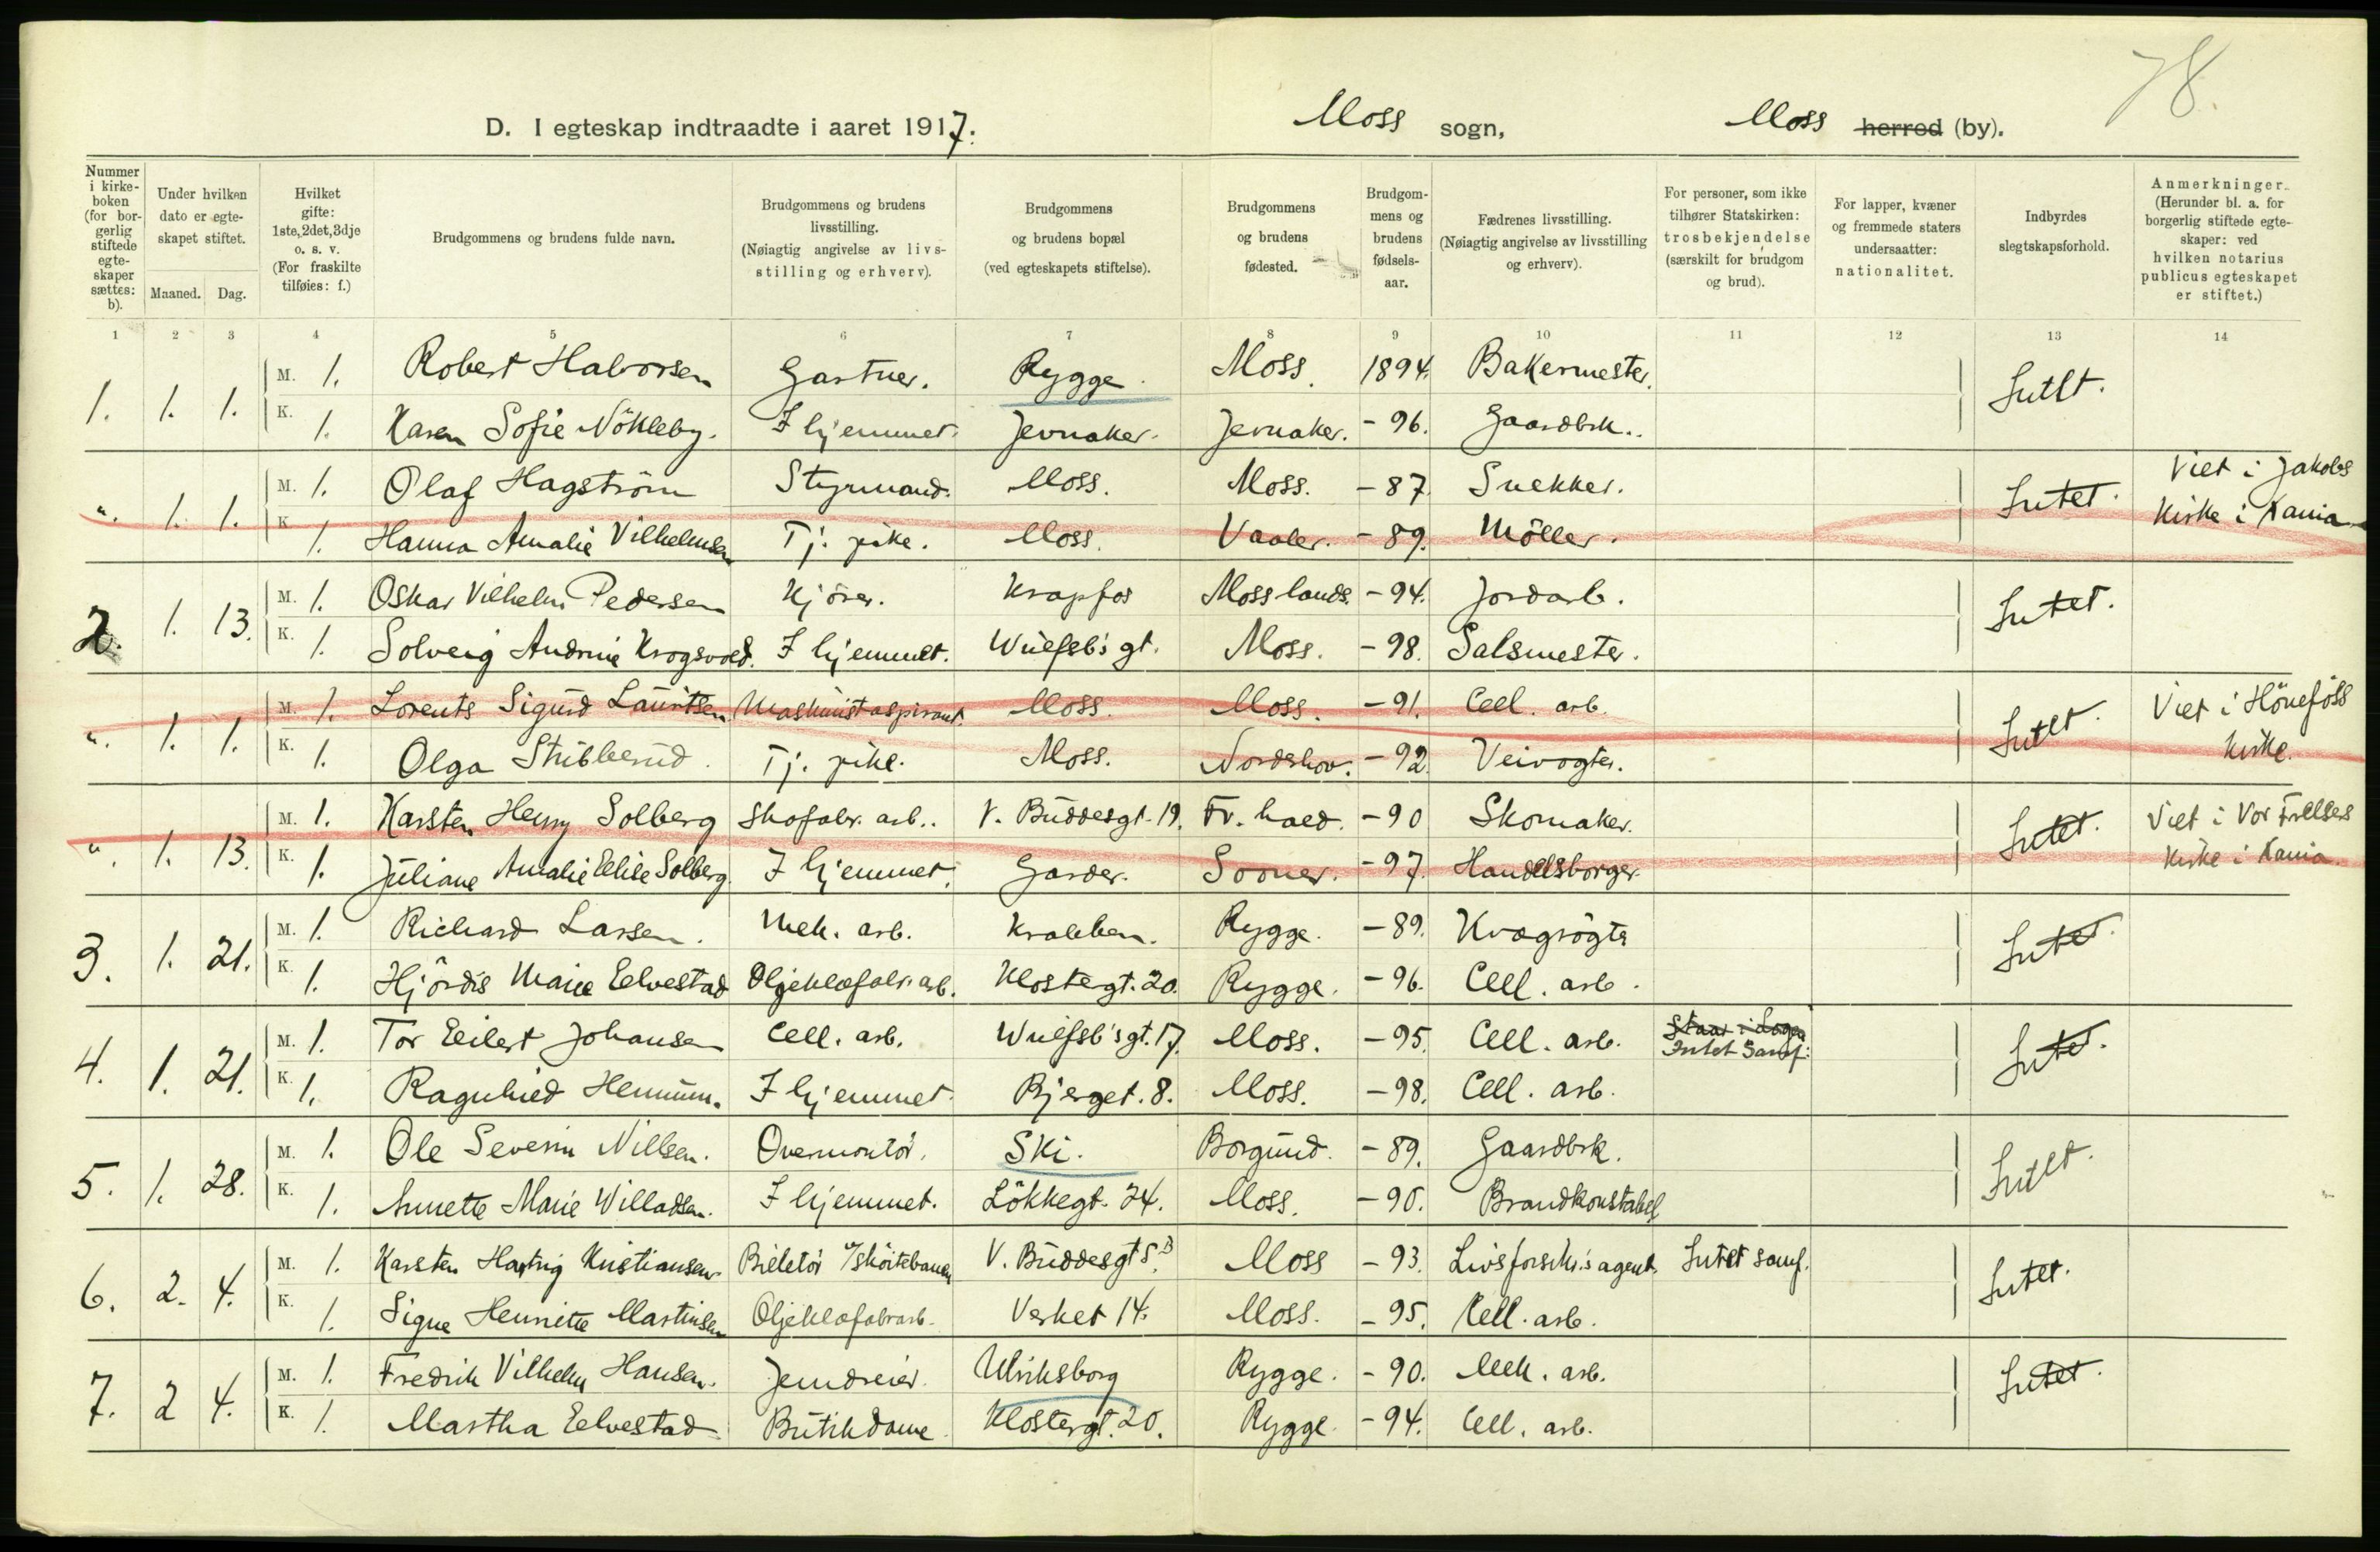 78.
D. I egteskap indtraadte i aaret 1917. Moss sogn, Moss herred (by).
Nummer i kirke-boken (for bor-gerlig stiftede egte-skaper sættes: b).
Under hvilken dato er egte-skapet stiftet.
Maaned. Dag.
Hvilket gifte: 1ste, 2det, 3dje o. s. v. (For fraskilte tilføies: f.)
Brudgommens og brudens fulde navn.
Brudgommens og brudens livsstilling. (Nøiagtig angivelse av livs-stilling og erhverv).
Brudgommens og brudens bopæl (ved egteskapets stiftelse).
Brudgommens og brudens fødested.
Brudgom-mens og brudens fødsels-aar.
Fædrenes livsstilling. (Nøiagtig angivelse av livsstilling og erhverv).
For personer, som ikke tilhører Statskirken: trosbekjendelse (særskilt for brudgom og brud).
For lapper, kvæner og fremmede staters undersaatter: nationalitet.
Indbyrdes slegtskapsforhold.
Anmerkninger. (Herunder bl. a. for borgerlig stiftede egte-skaper: ved hvilken notarius publicus egteskapet er stiftet.)
1 2 3 4 5 6 7 8 9 10 11 12 13 14
1. 1. 1. M. 1. Robert Halvorsen Gartner. Rygge. Moss. 1894. Bakermester. Intet.
K. 1. Karen Sofie Nökleby. I hjemmet. Jevnaker. Jevnaker. - 96. Gaardbrk..
". 1. 1. M. 1. Olaf Hagström Styrmand. Moss. Moss. - 87. Snekker. Intet. Viet i Jakobs
K. 1. Hanna Amalie Vilhelmsen Tj. pike. Moss. Vaaler. - 89. Möller. Kirke i Kania
2. 1. 13. M. 1. Oskar Vilhelm Pedersen Kjörer. Krapfos Moss lands. - 94. Jordarb. Intet.
K. 1. Solveig Andrine Krogsvold. I hjemmet. Wulfsb's gt. Moss. - 98. Salsmester.
". 1. 1. M. 1. Lorents Sigurd Lauritsen Maskinistaspirant. Moss. Moss. - 91. Cell. arb. Intet. Viet i Hönefoss
K. 1. Olga Stubberud. Tj. pike. Moss. Norderhov. - 92. Veivogter. Kirke.
". 1. 13. M. 1. Karsten Henry Solberg Skofabr. arb.. V. Buddesgt. 19. Fr. hald. - 90 Skomaker. Intet. Viet i Vor Frelsers
K. 1. Juliane Amalie Elise Solberg. I hjemmet. Garder. Sooner. - 97. Handelsborger. Kirke i Kania.
3. 1. 21. M. 1. Richard Larsen. Mek. arb. Krabben. Rygge. - 89. Kvægrögter Intet.
K. 1. Hjördis Marie Eelvestad Oljeklæfabr. arb. Klostergt. 20. Rygge. - 96. Cell. arb.
4. 1. 21. M. 1. Tor Eilert Johansen Cell. arb. Wulfsb's gt. 17. Moss. - 95. Cell. arb. Staar i Logen Intet Samf. Intet.
K. 1. Ragnhild Hennum. I hjemmet. Bjerget. 8. Moss. - 98. Cell. arb.
5. 1. 28. M. 1. Ole Severin Nilsen. Overmontör. Ski. Borgund. - 89. Gaardbrk. Intet.
K. 1. Annette Marie Willadsen. I hjemmet. Lökkegt. 24. Moss. - 90. Brandkonstabel
6. 2. 4. M. 1. Karsten Hartvig Kristiansen Billetör v/sköitebanen V. Buddesgt 5.B Moss - 93. Livsforsikr.s agent. Intet samf. Intet.
K. 1. Signe Henriette Martinsen Oljeklæfabrarb. Verket 14. Moss. - 95. Cell. arb.
7. 2 4. M. 1. Fredrik Vilhelm Hansen. Jerndreier. Ulriksborg Rygge. - 90. Mek. arb. Intet.
K. 1. Martha Eelvestad Butikdame. Klostergt. 20. Rygge. - 94. Cell. arb.